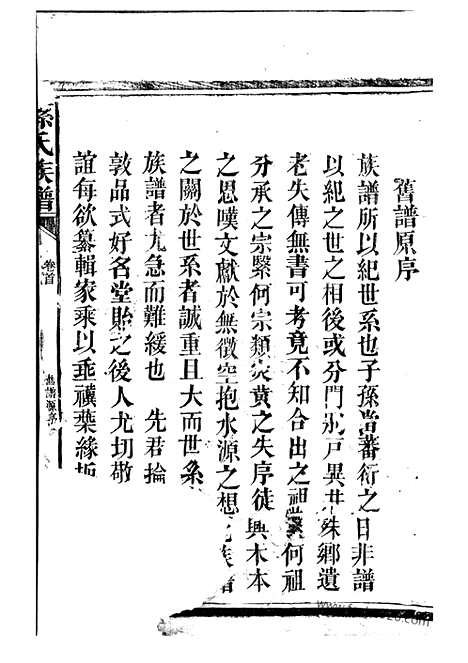 舊譜原序
族譜所以紀世系也子孫當蕃衍之日非譜
以紀之世之相後或分門別戶異井殊鄉遺
老失傳無書可考竟不知合出之祖係何祖
分承之宗緊何宗類炎黄之失序徒興木本
之思嘆文獻於無徵空抱水源之想 族譜
之關於世系者誠重且大而世系
族譜者尤急而難緩也 先君掄
敦品式好名堂貽之後人尤切敬
誼每欲纂輯家乘以垂禩葉緣
孫氏族譜
卷首
舊譜源序